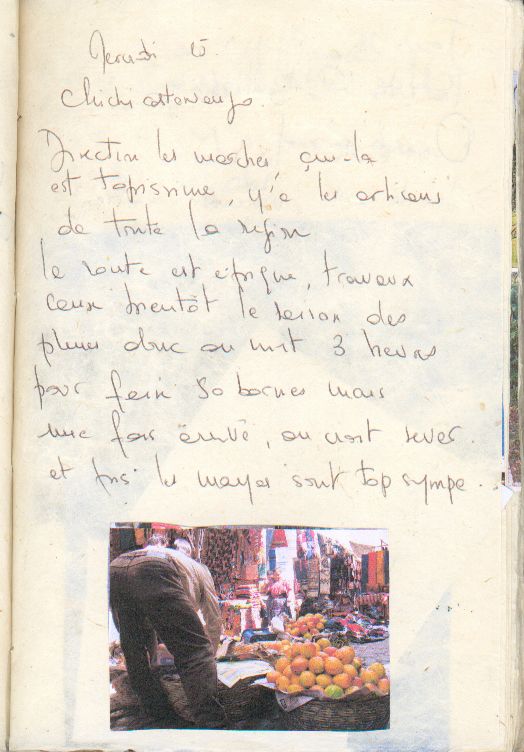 Chichicastenango.
Direction les marchés, çui-là
est topissime, y'a les artisans
de toute la région
la route est épique, travaux
bientôt la saison des
pluies donc on met 3 heures
pour faire 50 bornes mais
une fois arrivé, on croit rêver.
et puis les mayas sont top sympa...